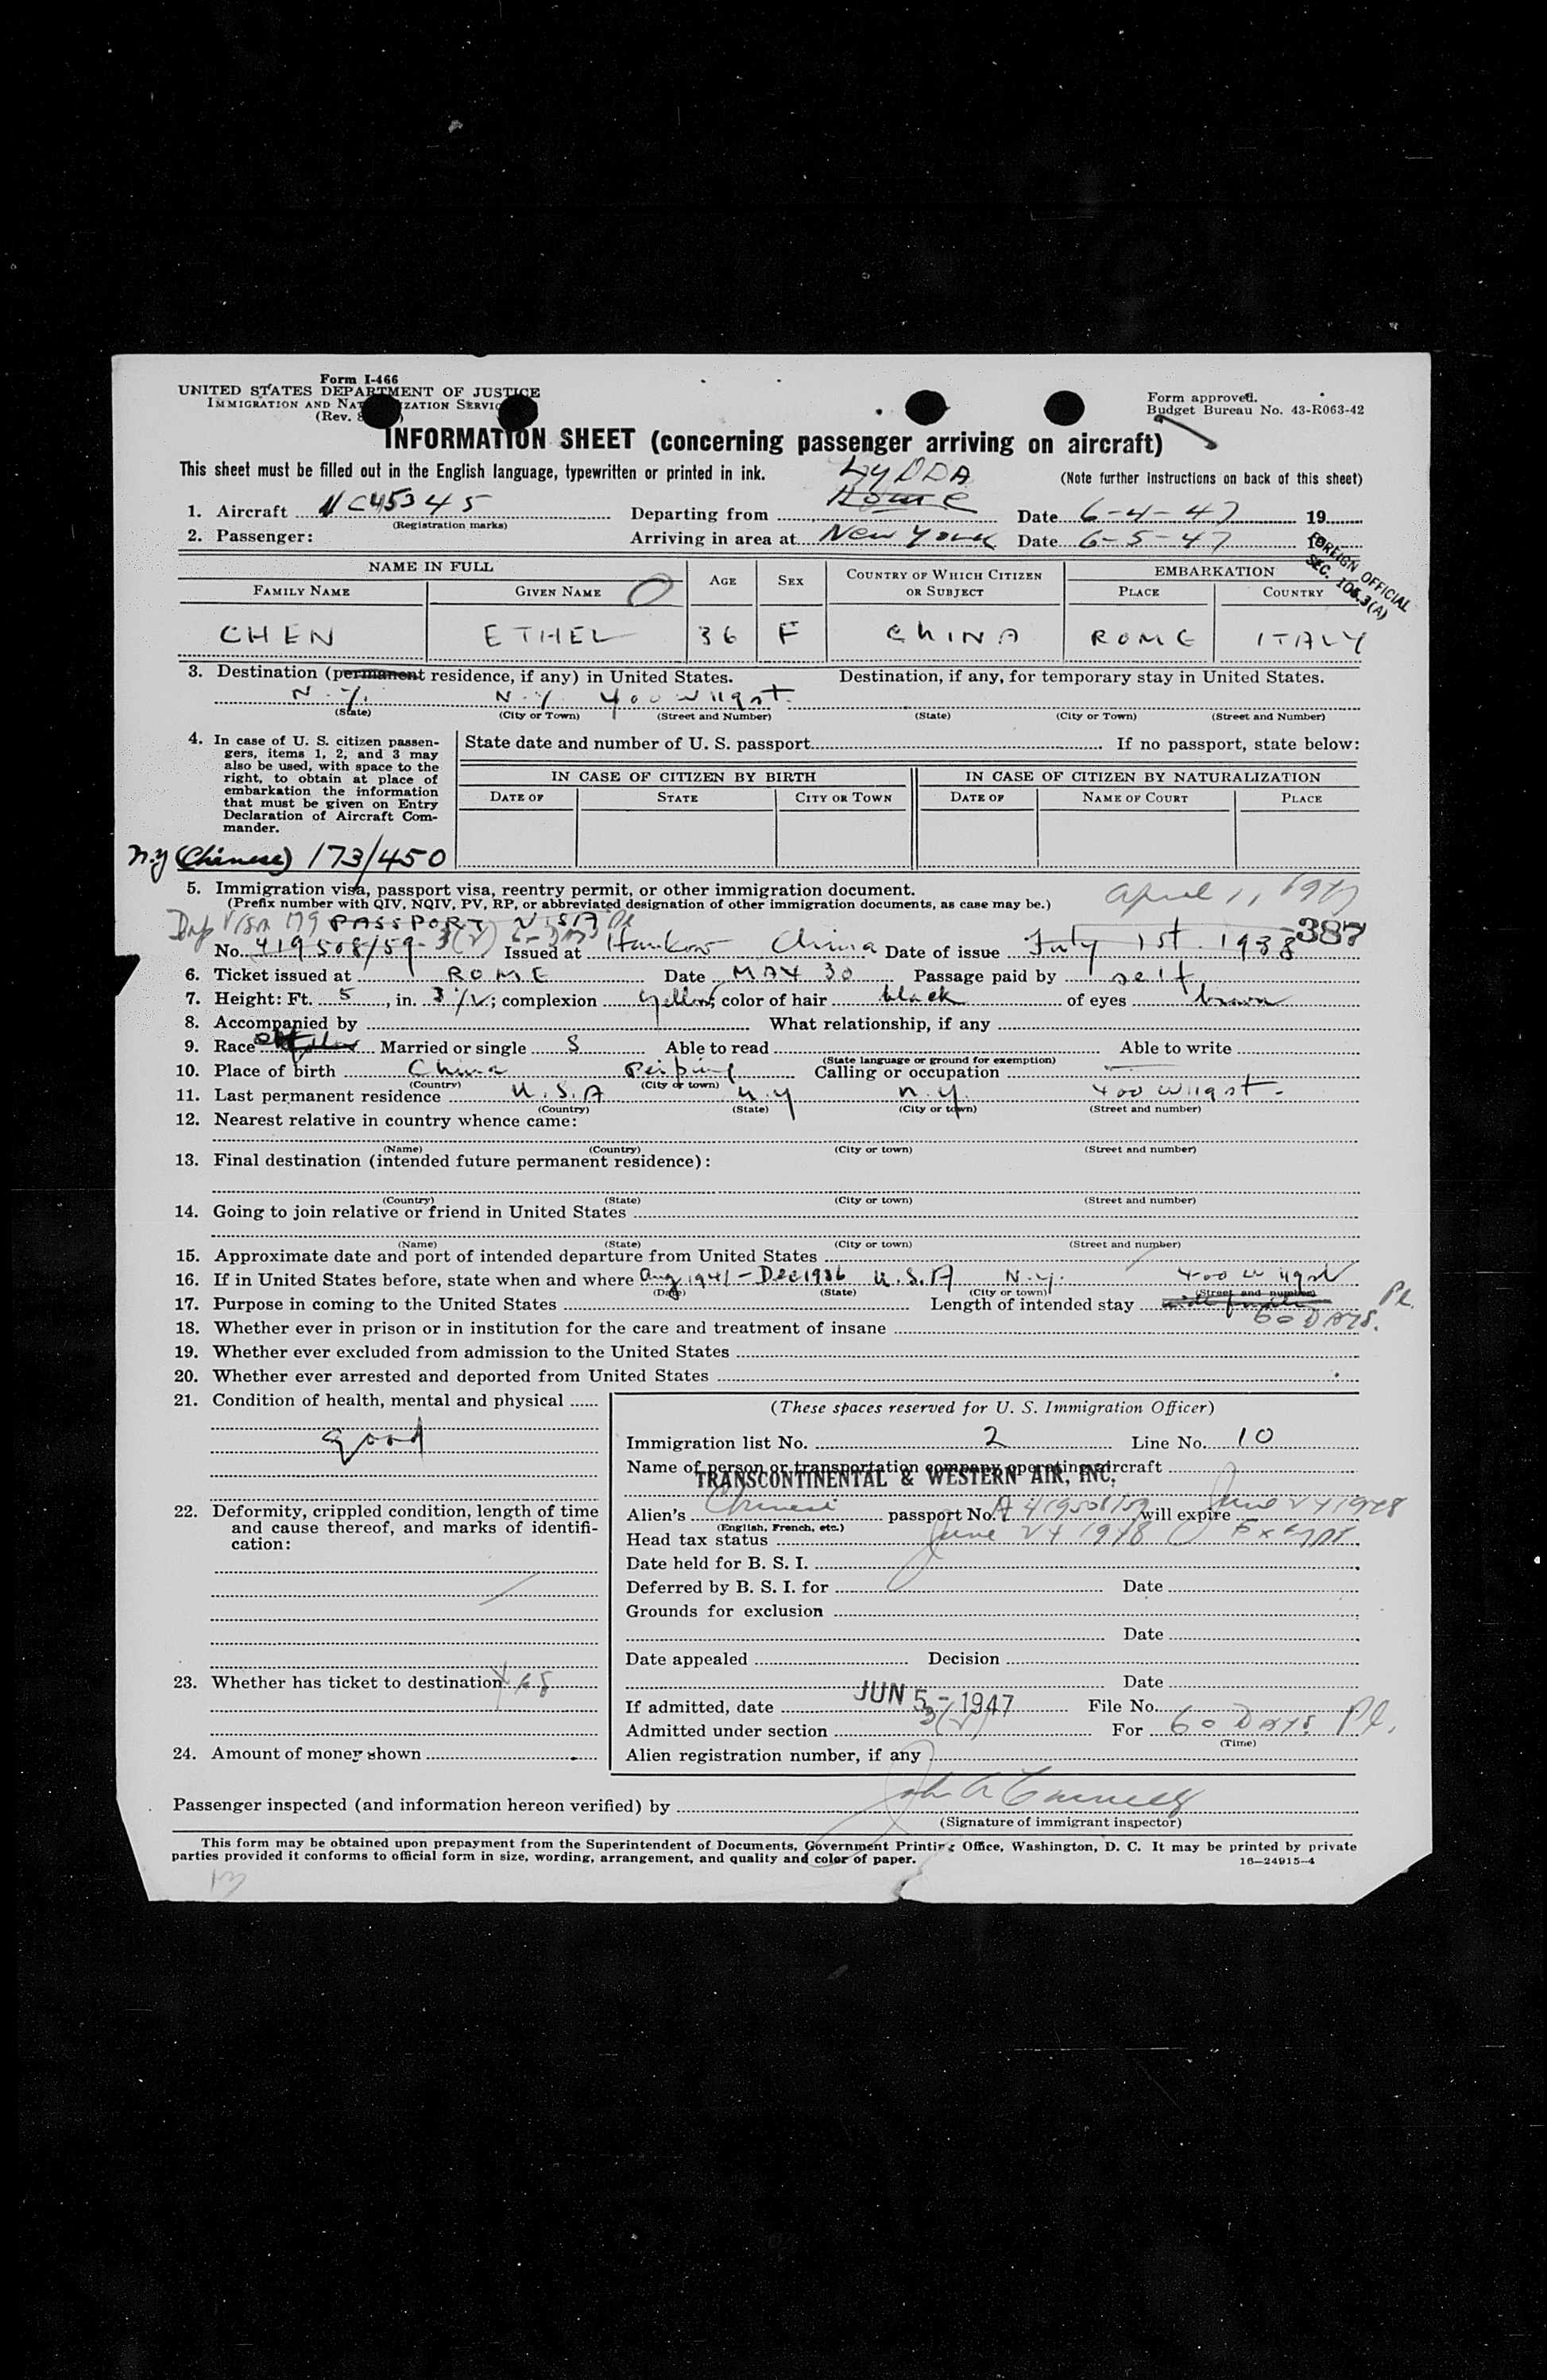 Form I-466
UNITED STATES DEPARTMENT OF JUSTICE
IMMIGRATION AND NATURALIZATION SERVICE
(Rev.
Form approved.
Budget Bureau No. 43-R063-42
INFORMATION SHEET (concerning passenger arriving on aircraft)
This sheet must be filled out in the English language, typewritten or printed in ink.
(Note further instructions on back of this sheet)
LYDDA
1. Aircraft NC45345 Departing from Rome Date 6-4-47 19
(Registration marks)
2. Passenger: Arriving in area at New York Date 6-5-47 19
FOREIGN OFFICIAL
SEC. 106.3(A)
NAME IN FULL AGE SEX COUNTRY OF WHICH CITIZEN OR SUBJECT EMBARKATION
FAMILY NAME GIVEN NAME PLACE COUNTRY
CHEN ETHEL 36 F CHINA ROME ITALY
3. Destination (permanent residence, if any) in United States. Destination, if any, for temporary stay in United States.
N.Y. N.Y. 400 W 119 st.
(State) (City or Town) (Street and Number) (State) (City or Town) (Street and Number)
4. In case of U. S. citizen passengers, items 1, 2, and 3 may also be used, with space to the right, to obtain at place of embarkation the information that must be given on Entry Declaration of Aircraft Commander.
State date and number of U. S. passport If no passport, state below:
IN CASE OF CITIZEN BY BIRTH IN CASE OF CITIZEN BY NATURALIZATION
DATE OF STATE CITY OR TOWN DATE OF NAME OF COURT PLACE
N.Y (Chinese) 173/450
5. Immigration visa, passport visa, reentry permit, or other immigration document.
(Prefix number with QIV, NQIV, PV, RP, or abbreviated designation of other immigration documents, as case may be.)
April 11, 1947
Dip VISA 179 PASSPORT VISA
387
No. 419508/59 3(2) Issued at Hankow China Date of issue July 1st. 1938
6. Ticket issued at ROME Date MAY 30 Passage paid by self
7. Height: Ft. 5, in. 3 1/2; complexion yellow; color of hair black of eyes brown
8. Accompanied by What relationship, if any
9. Race Married or single S Able to read Able to write
(State language or ground for exemption)
10. Place of birth China Peiping Calling or occupation
(Country) (City or town)
11. Last permanent residence U.S.A N.Y N.Y. 400 W 119 st.
(Country) (State) (City or town) (Street and number)
12. Nearest relative in country whence came:
(Name) (Country) (City or town) (Street and number)
13. Final destination (intended future permanent residence):
(Country) (State) (City or town) (Street and number)
14. Going to join relative or friend in United States
(Name) (State) (City or town) (Street and number)
15. Approximate date and port of intended departure from United States
16. If in United States before, state when and where Aug 1941 - Dec 1946 U.S.A N.Y. 400 W 119 st
(Date) (State) (City or town) (Street and number)
17. Purpose in coming to the United States Length of intended stay
60 DAYS. Pl.
18. Whether ever in prison or in institution for the care and treatment of insane
19. Whether ever excluded from admission to the United States
20. Whether ever arrested and deported from United States
21. Condition of health, mental and physical
good
22. Deformity, crippled condition, length of time and cause thereof, and marks of identification:
23. Whether has ticket to destination Yes
24. Amount of money shown
(These spaces reserved for U. S. Immigration Officer)
Immigration list No. 2 Line No. 10
Name of person or transportation company operating aircraft
TRANSCONTINENTAL & WESTERN AIR, INC.
Alien's Chinese passport No. A 419508/59 will expire June 24 1948
(English, French, etc.)
Head tax status June 24 1948 Exempt
Date held for B. S. I.
Deferred by B. S. I. for Date
Grounds for exclusion
Date
Date appealed Decision
Date
If admitted, date JUN 5 - 1947 File No.
Admitted under section 3(2) For 60 DAYS Pl.
(Time)
Alien registration number, if any
Passenger inspected (and information hereon verified) by
(Signature of immigrant inspector)
This form may be obtained upon prepayment from the Superintendent of Documents, Government Printing Office, Washington, D. C. It may be printed by private
parties provided it conforms to official form in size, wording, arrangement, and quality and color of paper.
16—24915-4